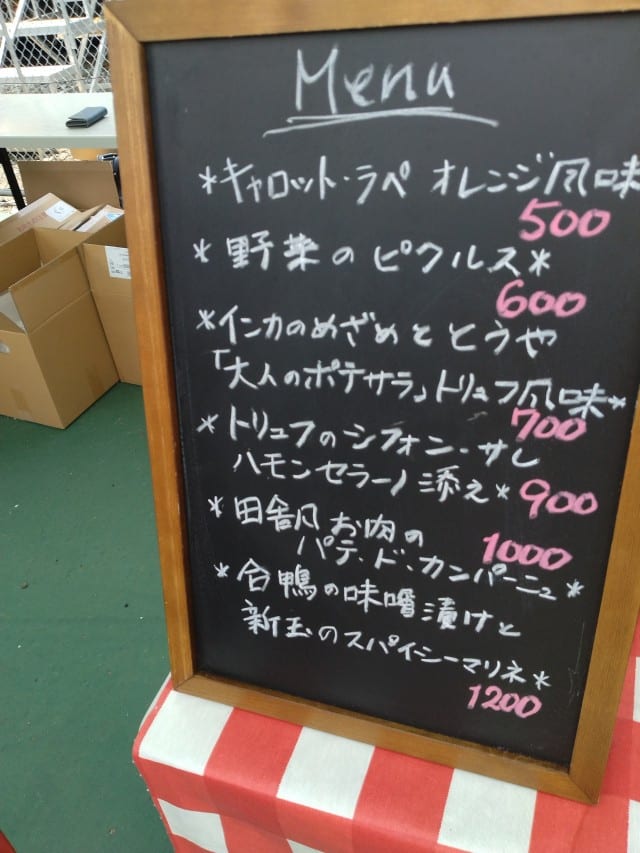 Menu
*キャロット・ラペ オレンジ風味
500
*野菜のピクルス*
600
*インカのめざめととうや
「大人のポテサラ」トリュフ風味*
700
*トリュフのシフォン・サレ
ハモンセラーノ添え*900
*田舎風お肉の
パテ・ド・カンパーニュ*
1000
*合鴨の味噌漬けと
新玉のスパイシーマリネ*
1200